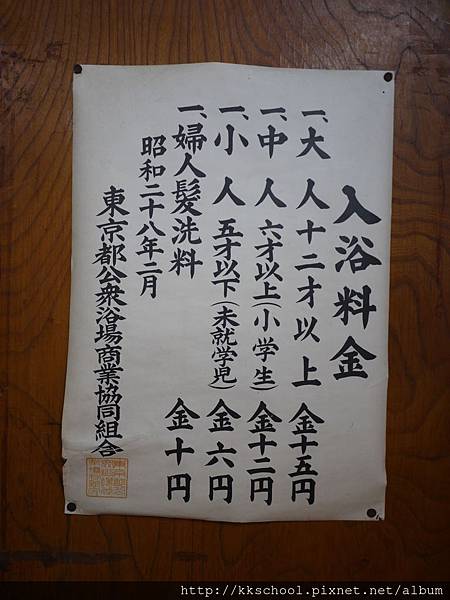 入浴料金
一、大人 十二才以上 金十五円
一、中人 六才以上(小学生) 金十二円
一、小人 五才以下(未就学児) 金六円
一、婦人髪洗料 金十円
昭和二十八年二月
東京都公衆浴場商業協同組合
http://kkschool.pixnet.net/album